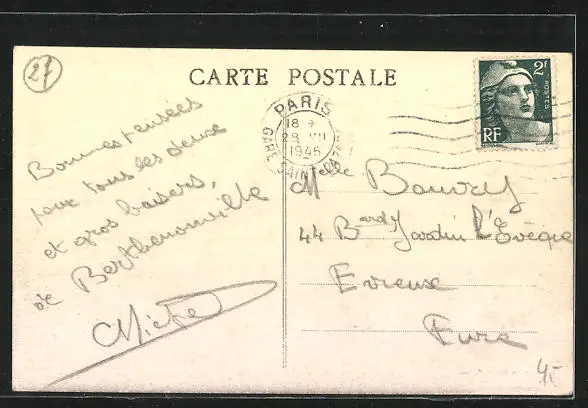 27
CARTE POSTALE
2F
POSTES
RF
PARIS
18
28 VII
1945
GARE SAINT-LAZARE
Bonnes pensées
pour tous les deux
et gros baisers,
de Berthenonville
Melle Bouvry
44 Bard Jardin l'Évêque
Evreux
Eure
4,-